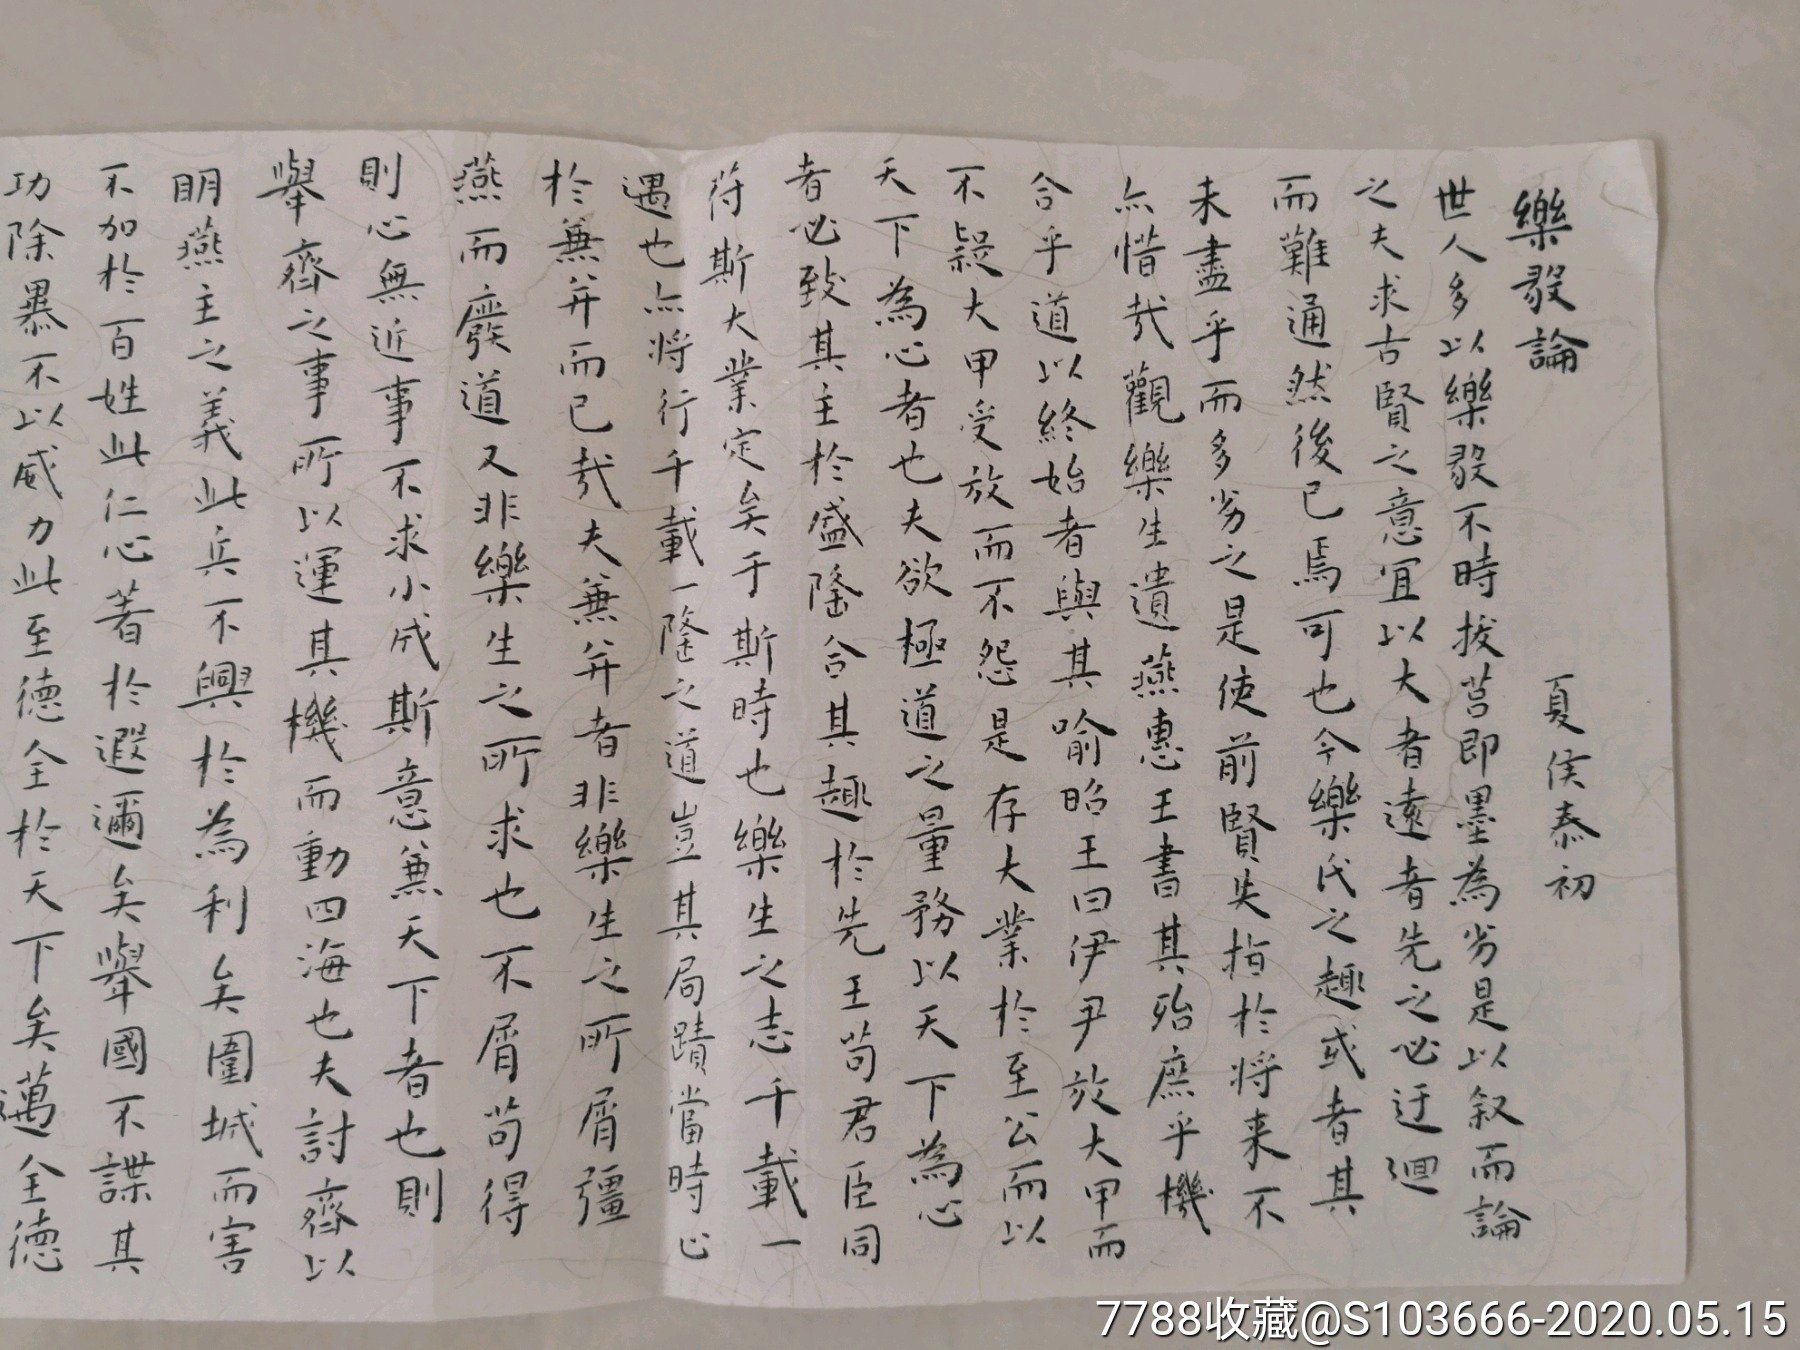 樂毅論
夏侯泰初
世人多以樂毅不時拔莒即墨為劣是以叙而論
之夫求古賢之意宜以大者遠者先之必迂迴
而難通然後已焉可也今樂氏之趣或者其
未盡乎而多劣之是使前賢失指於将来不
亦惜哉觀樂生遺燕惠王書其殆庶乎機
合乎道以終始者與其喻昭王曰伊尹放大甲而
不疑大甲受放而不怨是存大業於至公而以
天下為心者也夫欲極道之量務以天下為心
者必致其主於盛隆合其趣於先王苟君臣同
符斯大業定矣于斯時也樂生之志千載一
遇也亦將行千載一隆之道豈其局蹟當時止
於兼并而已哉夫兼并者非樂生之所屑彊
燕而廢道又非樂生之所求也不屑苟得
則心無近事不求小成斯意兼天下者也則
舉齊之事所以運其機而動四海也夫討齊以
明燕主之義此兵不興於為利矣圍城而害
不加於百姓此仁心著於遐邇矣舉國不謀其
功除暴不以威力此至德全於天下矣邁全德
7788收藏@S103666-2020.05.15